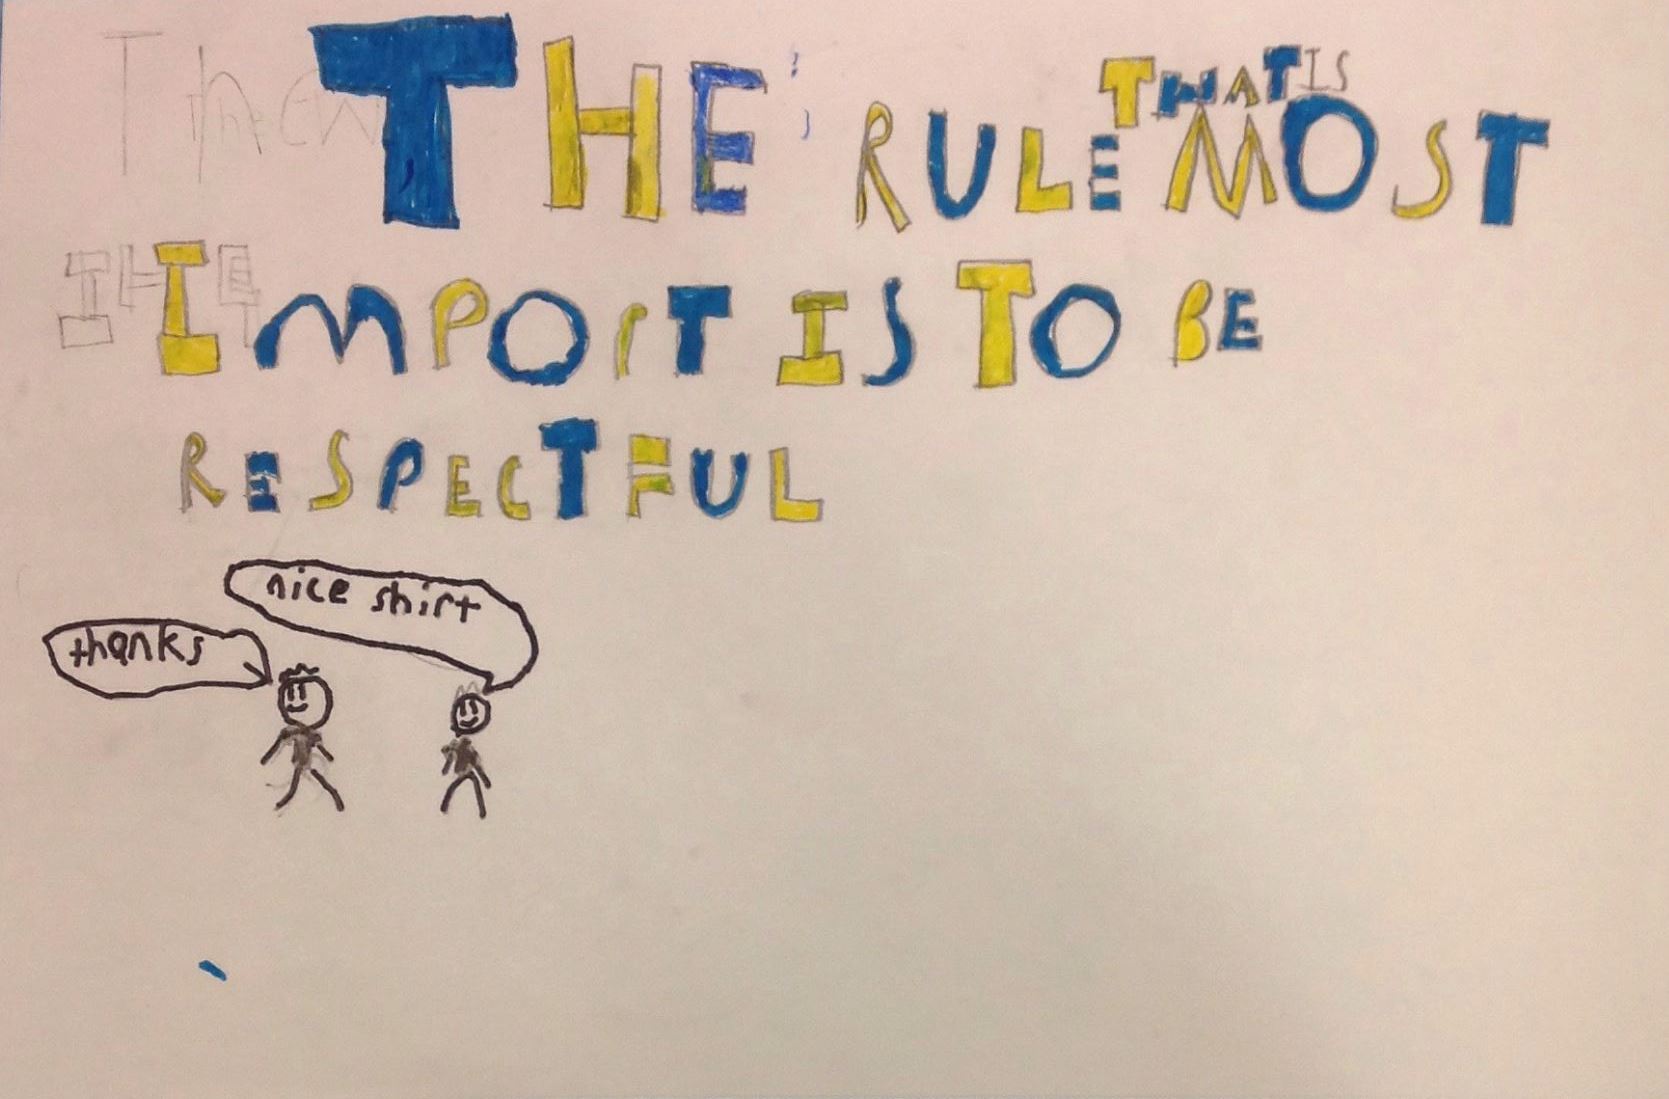 THE RULE THAT IS MOST
IMPORT IS TO BE
RESPECTFUL
nice shirt
thanks